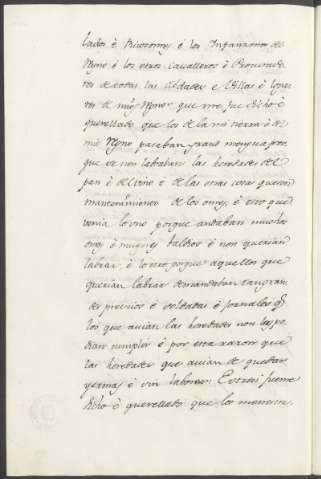 lados è Ricosomes è los Infanzones del
Reyno è los otros Cavalleros è Procurado
res de todas las Cibdades è Villas è Logares
de mio Señor que me fue dicho è
querellado que los de la mi tierra è de
mis Reynos pasaban grand mengua por
que se non labraban las heredades del
pan è del vino è de las otras cosas que son
mantenimiento de los omes, è esto que
venia lo uno porque andaban muchos
omes è mugeres baldios è non querian
labrar, è lo otro porque aquellos que
querian labrar demandaban tan gran
des precios è soldadas è jornales q.
los que avian las heredades non las po
dian cumplir è por esta razon que
las heredades que avian de quedar
yermas è sin labores. Et otrosi fueme
dicho è querellado que los menestra